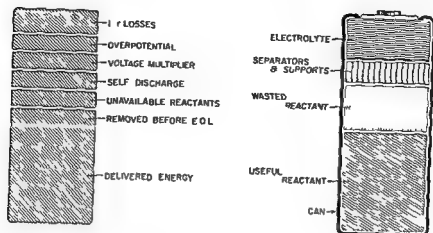 I r LOSSES
OVERPOTENTIAL
VOLTAGE MULTIPLIER
SELF DISCHARGE
UNAVAILABLE REACTANTS
REMOVED BEFORE E O L
DELIVERED ENERGY
ELECTROLYTE
SEPARATORS
& SUPPORTS
WASTED
REACTANT
USEFUL
REACTANT
CAN